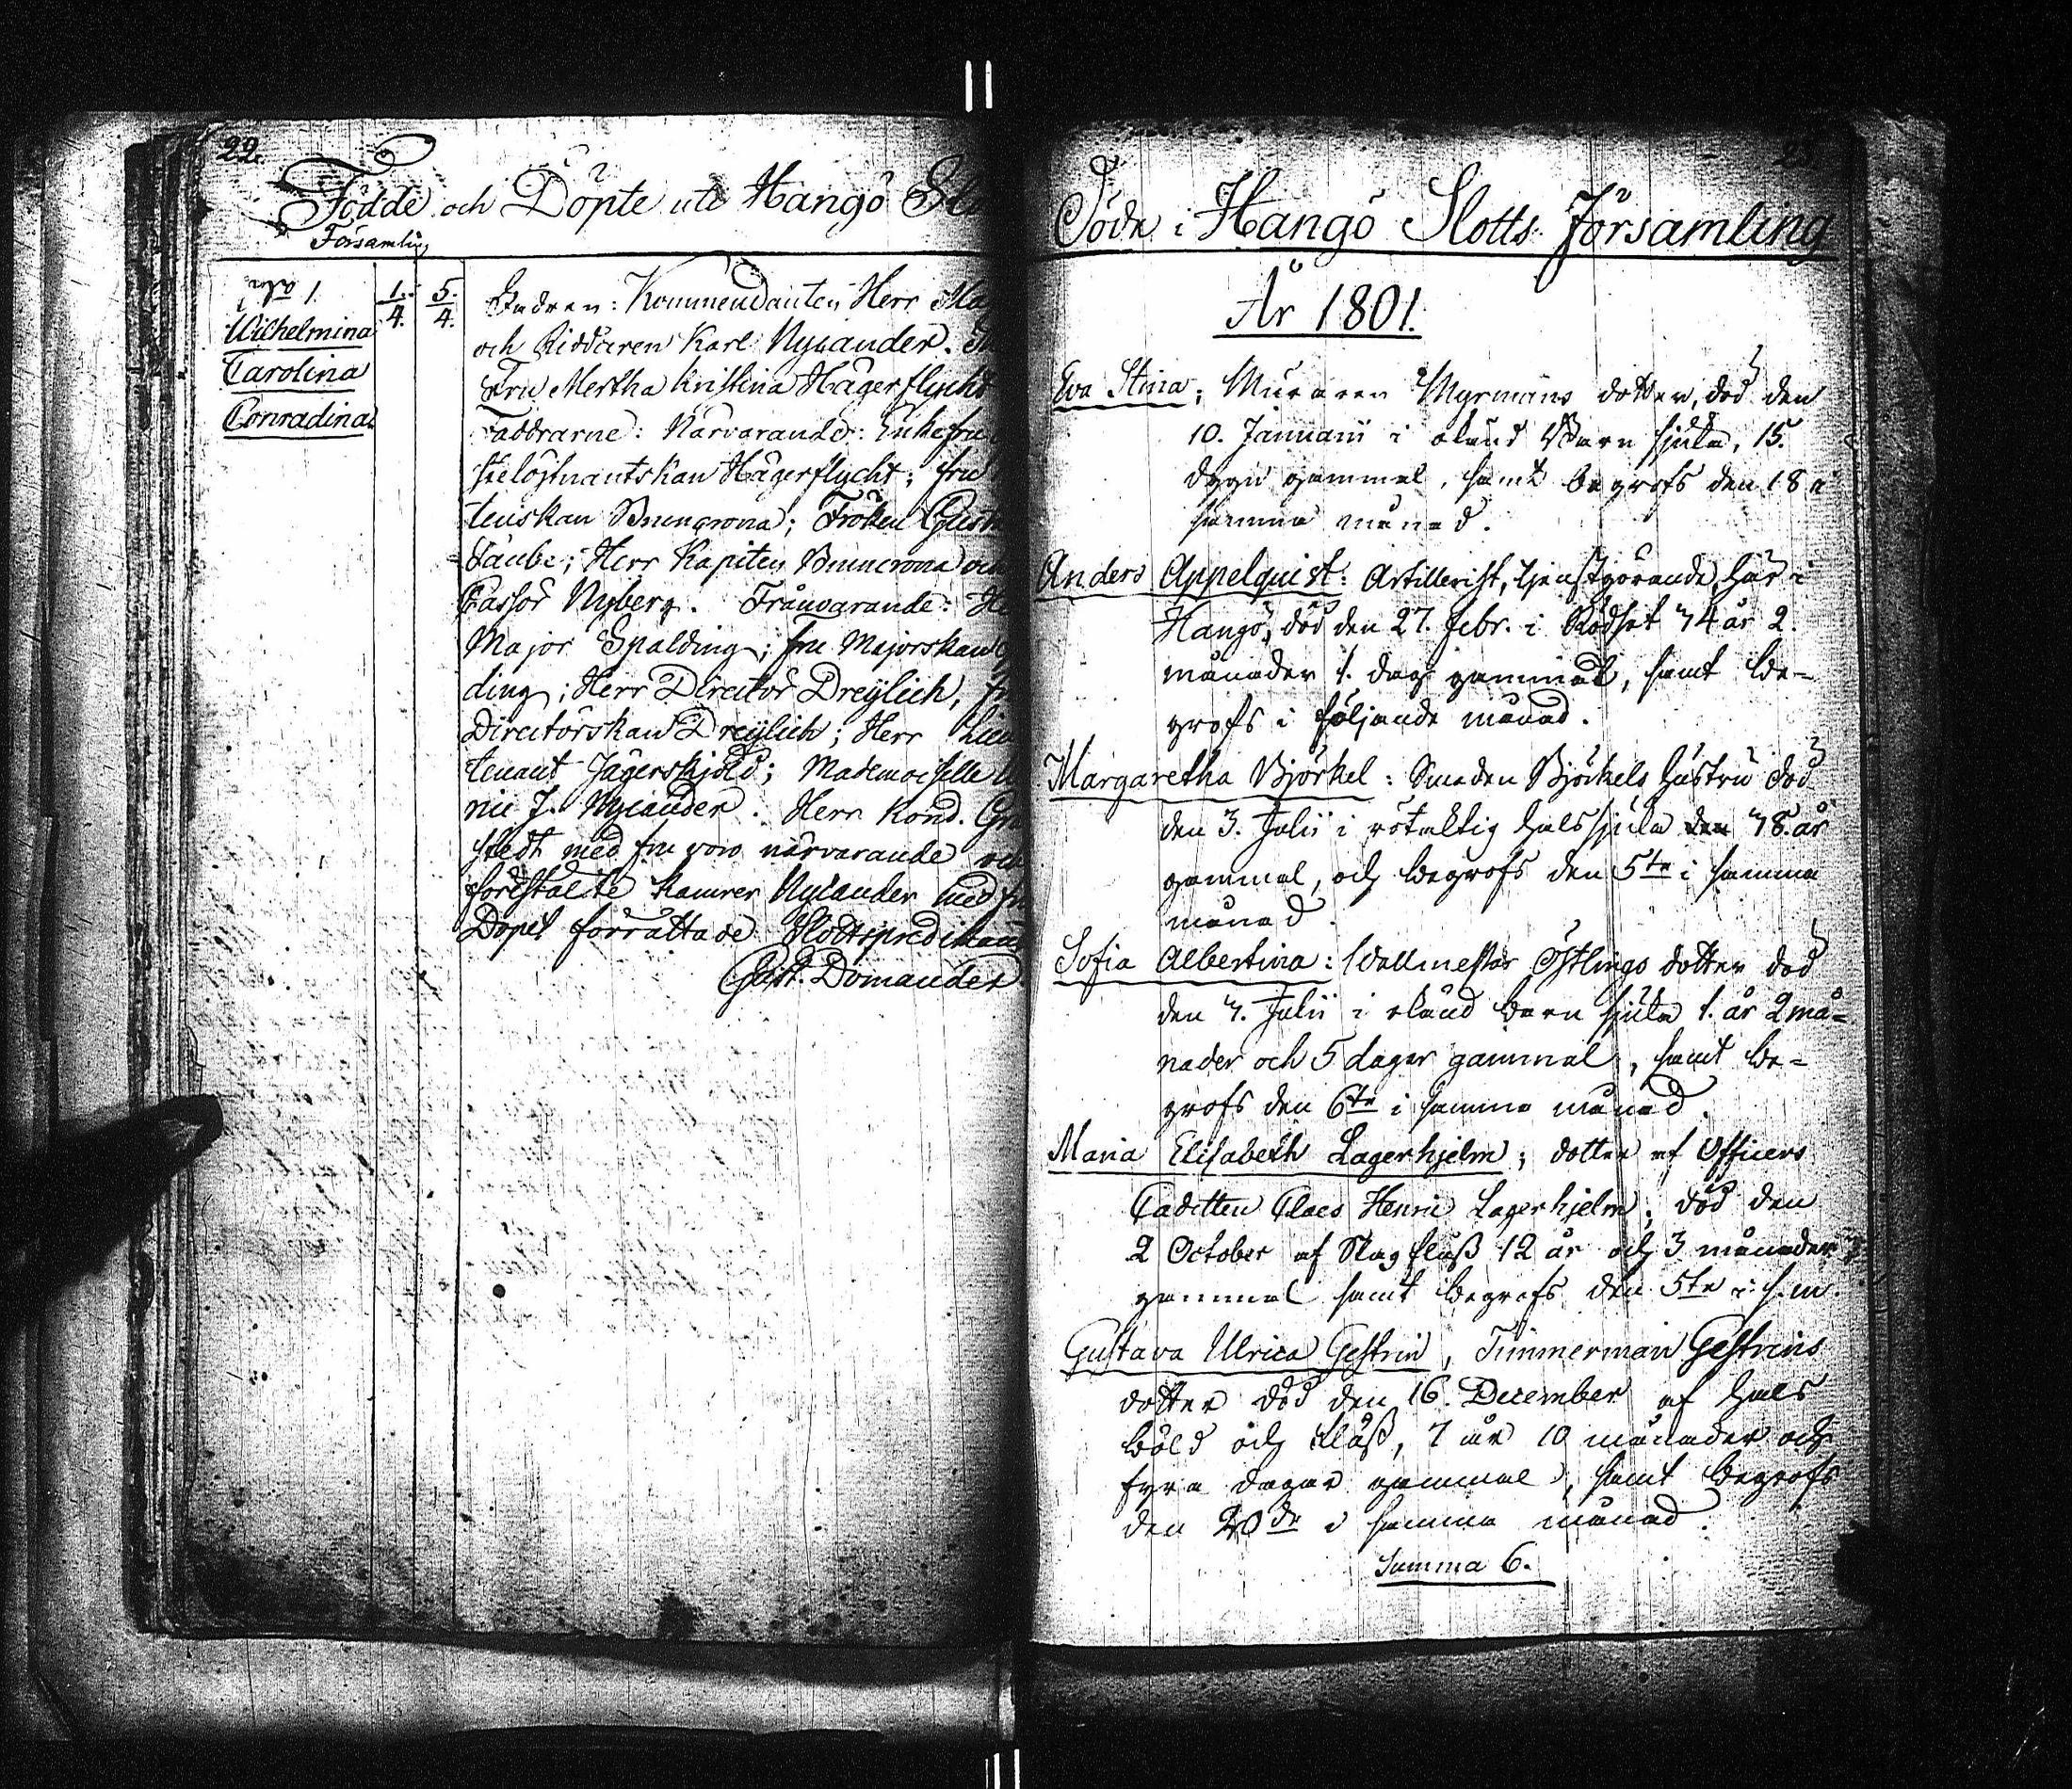 22.
Födde och Döpte uti Hangö
Församling
No 1.
Wilhelmina
Carolina
Conradina
1. 5.
4. 4.
Fadren: Kommendanten Herr
och Riddaren Karl Nylander.
Fru Mertha Kristina Hägerflycht
Faddrarne: Närvarande: Enkefru
Hägerflycht; fru
Fröken
Taube; Herr Kapiten och
Cassör Nyberg. Frånvarande:
Major Spalding; fru Majorskan
ding; Herr Director Dreÿlich,
Directörskan Dreÿlich; Herr Lieu
tenant Jägerskjöld; Mademoiselle
J. Nylander. Herr Kond.
stedt med fru voro närvarande och
förestälte Kamrer Nylander med
Döpet förrättade Slottspredikant
Gust. Domander.
Döde i Hangö Slotts Församling
År 1801.
Eva Stina; Muraren Myrmans dotter, död den
10. Januarii i okänd Barn sjuka, 15.
dygn gammal, samt begrofs den 18 i
samma månad.
Anders Appelquist: Artillerist, tjenstgörande här i
Hangö, död den 27. febr. i Rödsot 74 år 2.
månader 1. dag gammal, samt be-
grofs i följande månad.
Margaretha Björkel: Smeden Björkels hustru död
den 3. Julii i rötaktig halssjuka den 78. år
gammal, och begrofs den 5te i samma
månad.
Sofia Albertina: Wallmestar Östlings dotter död
den 4. Julii i okänd barn sjuka 1. år 2 må-
nader och 5 dagar gammal, samt be-
grofs den 6te i samma månad.
Maria Elisabeth Lagerhjelm; dotter af Officers
Cadetten Claes Henric Lagerhjelm; död den
2 October af Slag fluss 12 år och 3 månader
gammal samt begrofs den 5te i s. m.
Gustava Ulrica Gestrin, Timmerman Gestrins
dotter död den 16. December af hals
böld och fluss, 7 år 10 månader och
fyra dagar gammal, samt begrofs
den 20de i samma månad.
Summa 6.